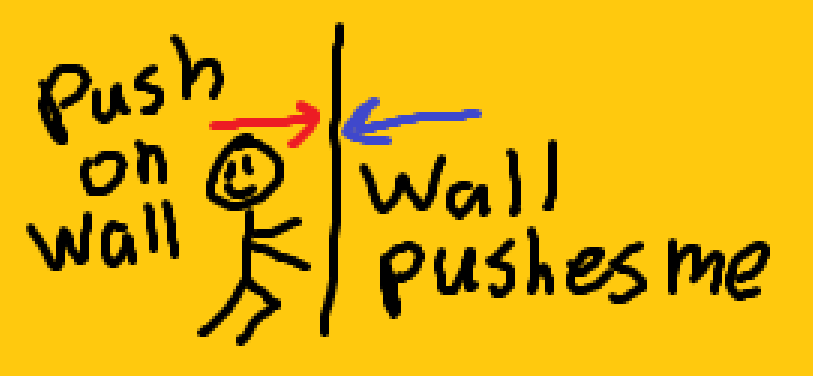 Push
on
Wall
Wall
pushes me